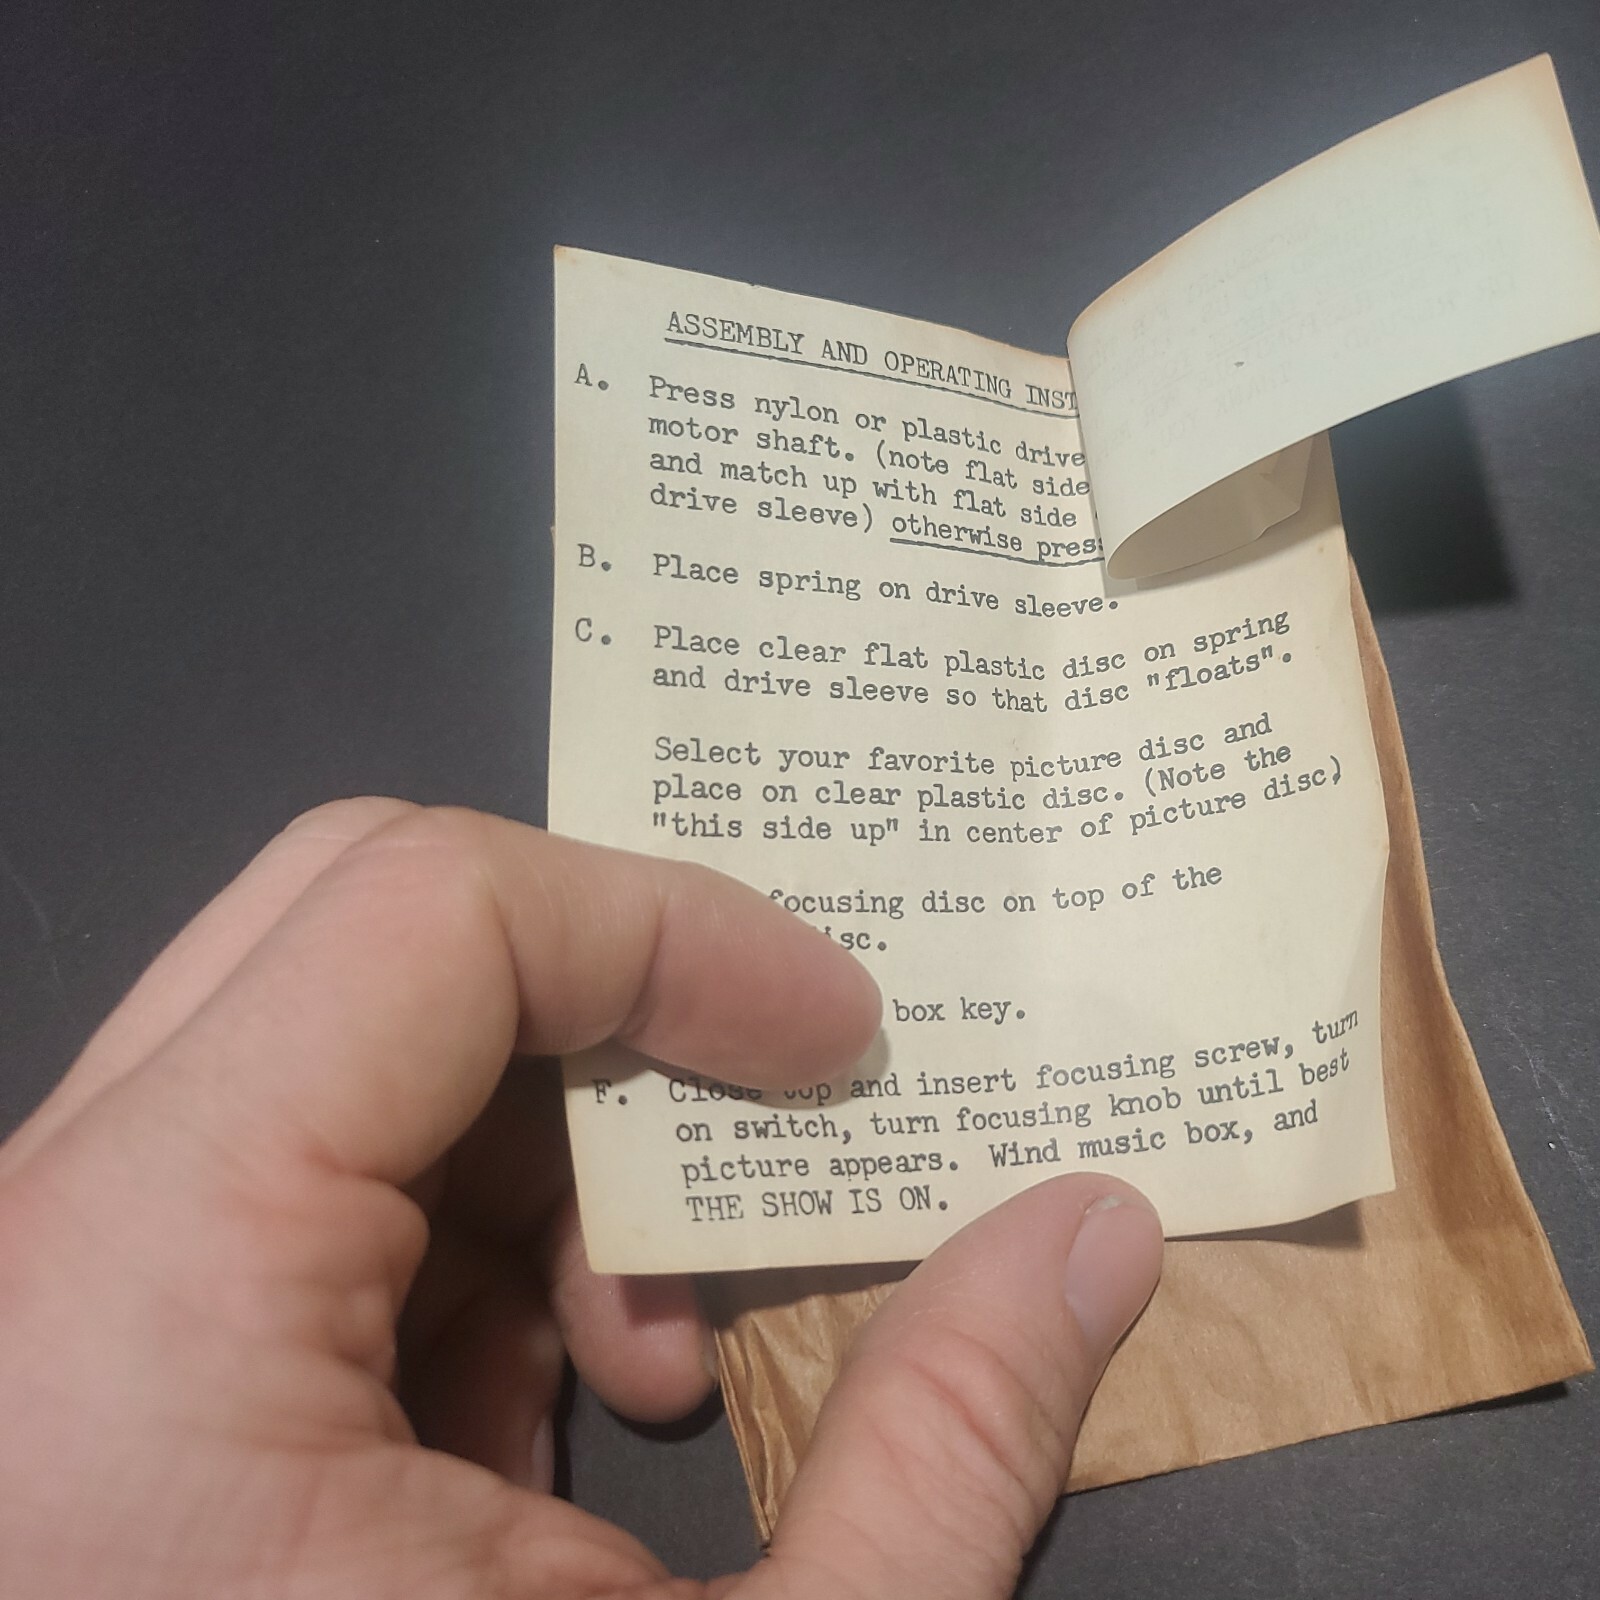 ASSEMBLY AND OPERATING
A. Press nylon or plastic drive
motor shaft. (note flat side
and match up with flat side
drive sleeve) otherwise
B. Place spring on drive sleeve.
C. Place clear flat plastic disc on spring
and drive sleeve so that disc "floats".
Select your favorite picture disc and
place on clear plastic disc. (Note the
"this side up" in center of picture disc)
focusing disc on top of the
box key.
F. Close top and insert focusing screw, turn
on switch, turn focusing knob until best
picture appears. Wind music box, and
THE SHOW IS ON.